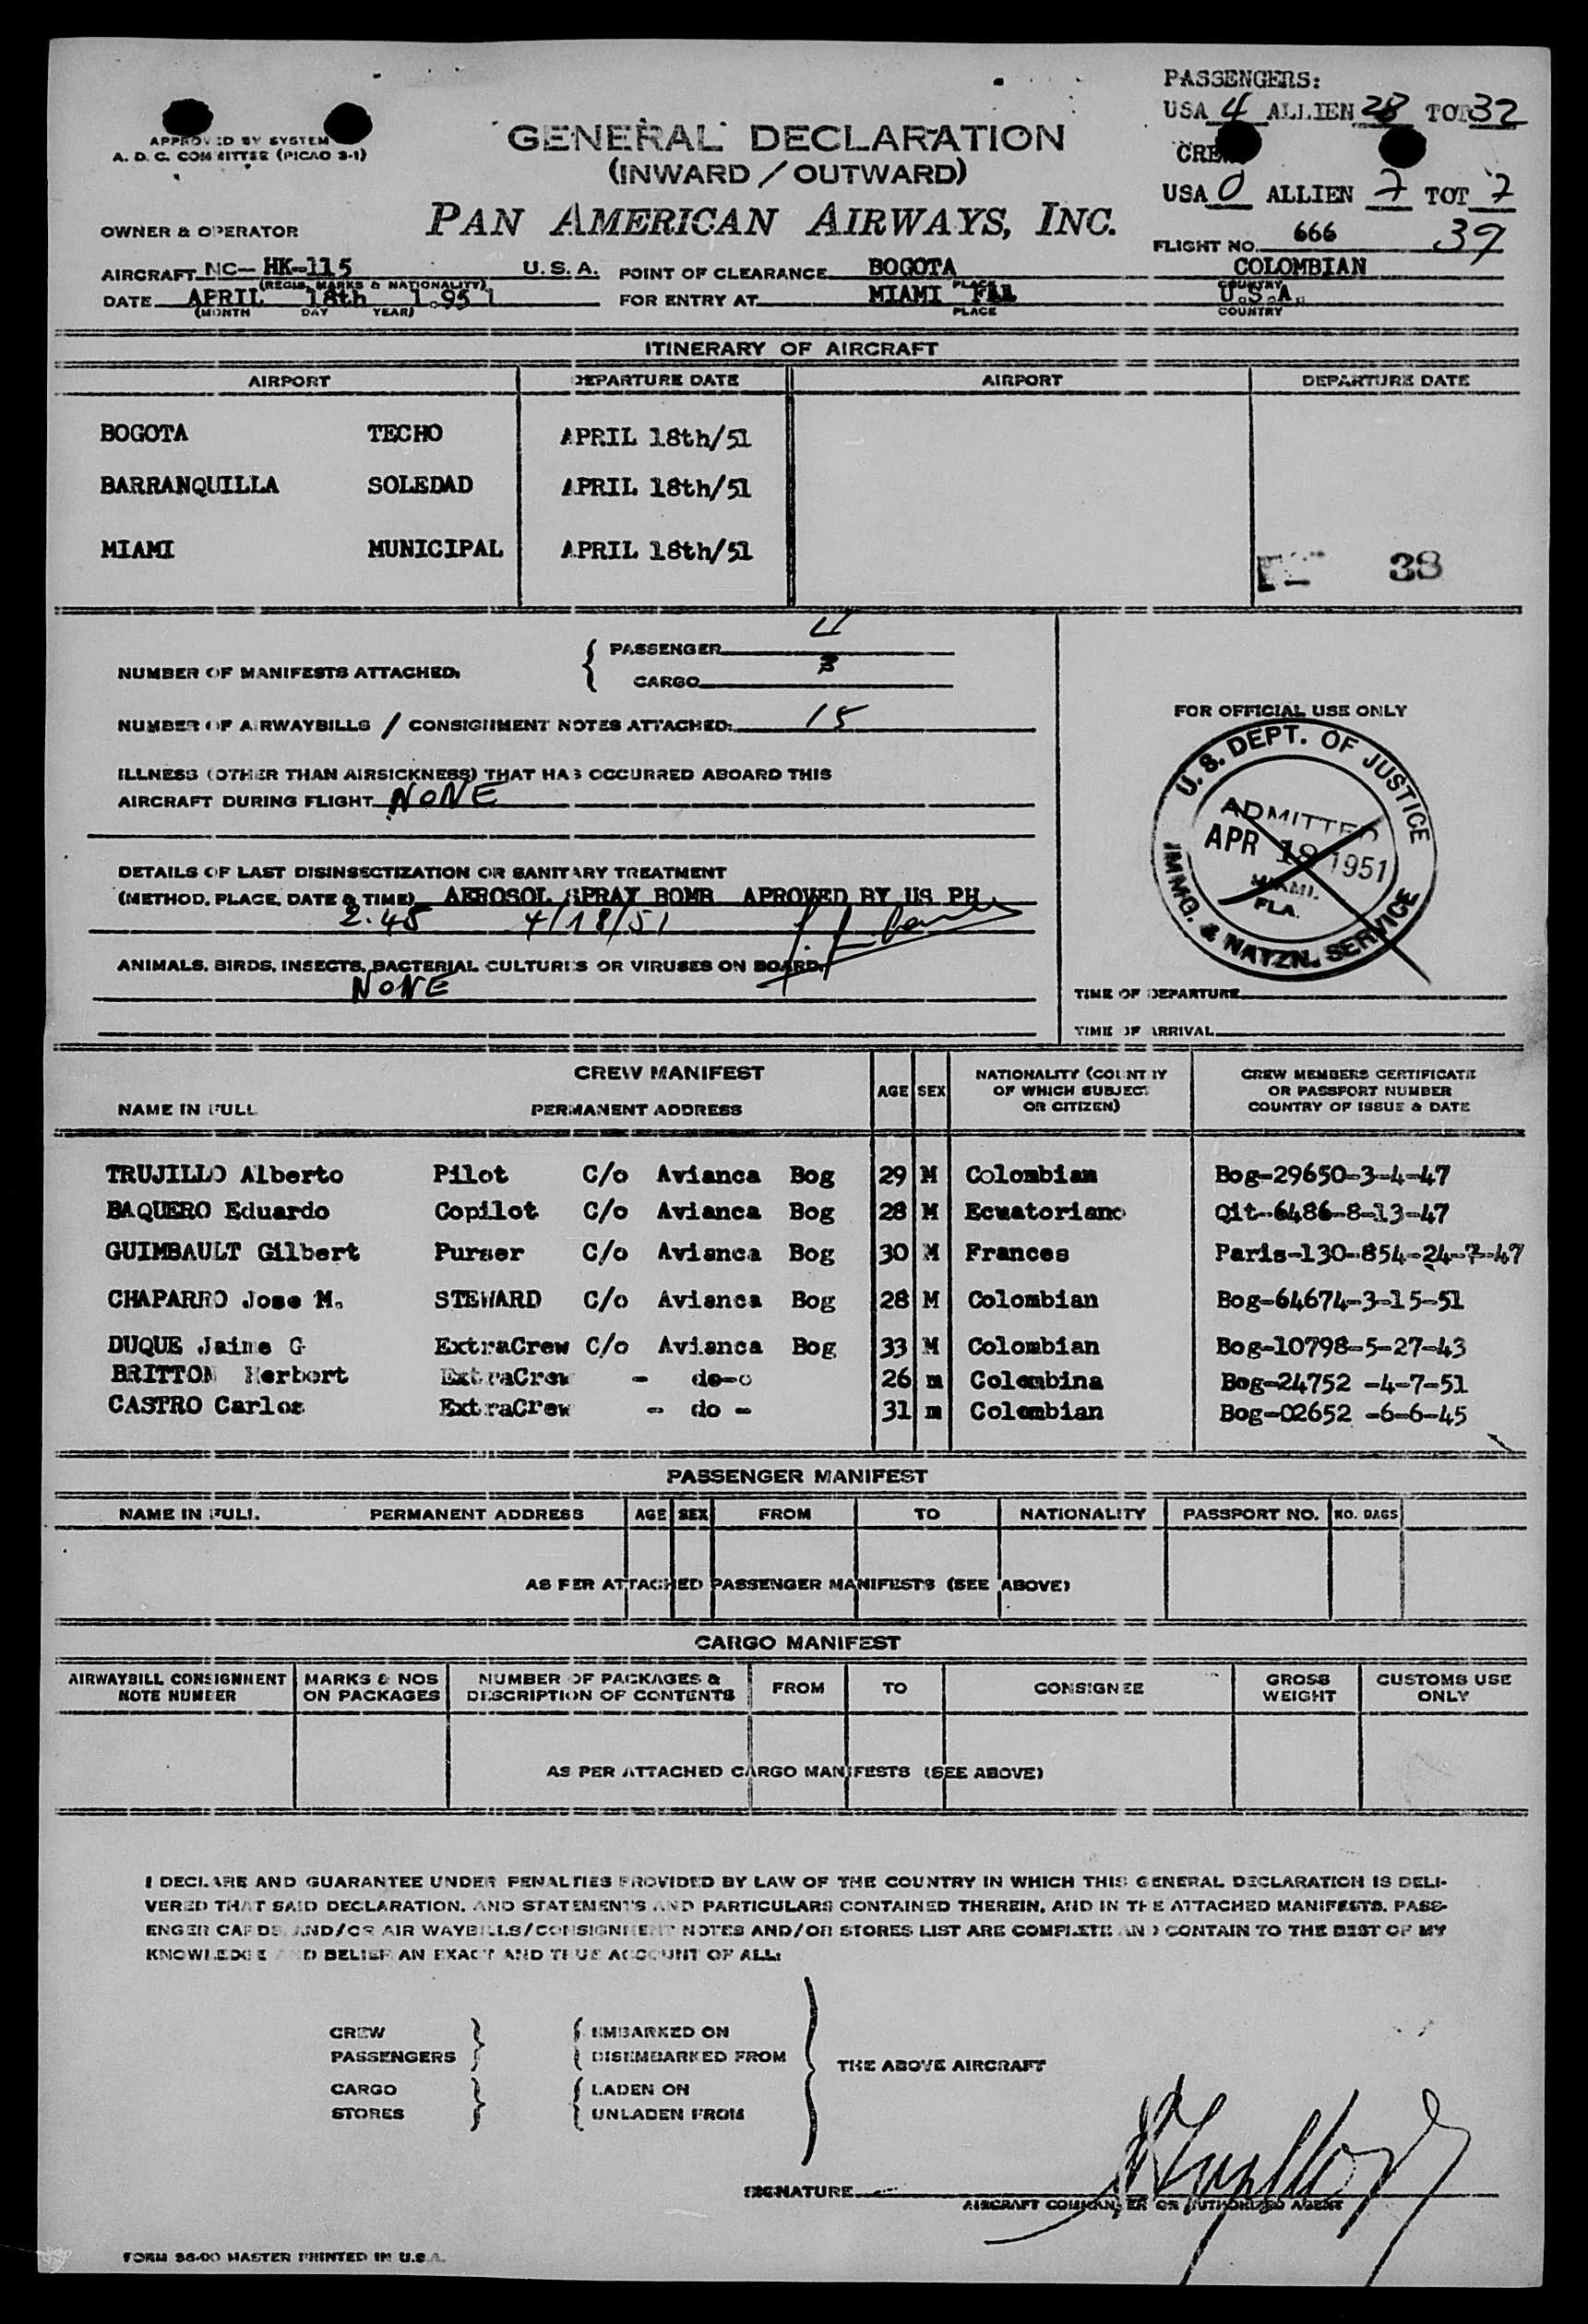 PASSENGERS:
USA 4 ALLIEN 28 TOT 32
APPROVED BY SYSTEM
A. D. C. COMMITTEE (PICAO 3-1)
GENERAL DECLARATION
CREW
(INWARD / OUTWARD)
USA 0 ALLIEN 7 TOT 7
OWNER & OPERATOR
PAN AMERICAN AIRWAYS, INC.
FLIGHT NO. 666 39
AIRCRAFT NC- HK-115 U. S. A. POINT OF CLEARANCE BOGOTA COLOMBIAN
(REGIS. MARKS & NATIONALITY) PLACE COUNTRY
DATE APRIL 18th 1.951 FOR ENTRY AT MIAMI FLA U.S.A.
(MONTH DAY YEAR) PLACE COUNTRY
ITINERARY OF AIRCRAFT
AIRPORT DEPARTURE DATE AIRPORT DEPARTURE DATE
BOGOTA TECHO APRIL 18th/51
BARRANQUILLA SOLEDAD APRIL 18th/51
MIAMI MUNICIPAL APRIL 18th/51
38
NUMBER OF MANIFESTS ATTACHED. { PASSENGER
CARGO 3
NUMBER OF AIRWAYBILLS / CONSIGNMENT NOTES ATTACHED: 15
FOR OFFICIAL USE ONLY
ILLNESS (OTHER THAN AIRSICKNESS) THAT HAS OCCURRED ABOARD THIS
AIRCRAFT DURING FLIGHT NONE
U. S. DEPT. OF JUSTICE
ADMITTED
APR 18 1951
MIAMI.
FLA.
IMMG. & NATZN. SERVICE
DETAILS OF LAST DISINSECTIZATION OR SANITARY TREATMENT
(METHOD, PLACE, DATE & TIME) AEROSOL SPRAY BOMB APROVED BY US PH
2.45 4/18/51
ANIMALS, BIRDS, INSECTS, BACTERIAL CULTURES OR VIRUSES ON BOARD.
NONE
TIME OF DEPARTURE
TIME OF ARRIVAL
CREW MANIFEST
NAME IN FULL PERMANENT ADDRESS AGE SEX NATIONALITY (COUNTRY OF WHICH SUBJECT OR CITIZEN) CREW MEMBERS CERTIFICATE OR PASSPORT NUMBER COUNTRY OF ISSUE & DATE
TRUJILLO Alberto Pilot C/o Avianca Bog 29 M Colombian Bog-29650-3-4-47
BAQUERO Eduardo Copilot C/o Avianca Bog 28 M Ecuatoriano Qit-6486-8-13-47
GUIMBAULT Gilbert Purser C/o Avianca Bog 30 M Frances Paris-130-854-24-7-47
CHAPARRO Jose M. STEWARD C/o Avianca Bog 28 M Colombian Bog-64674-3-15-51
DUQUE Jaime G ExtraCrew C/o Avianca Bog 33 M Colombian Bog-10798-5-27-43
BRITTON Herbert ExtraCrew - do-o 26 m Colombina Bog-24752 -4-7-51
CASTRO Carlos ExtraCrew - do - 31 m Colombian Bog-02652 -6-6-45
PASSENGER MANIFEST
NAME IN FULL PERMANENT ADDRESS AGE SEX FROM TO NATIONALITY PASSPORT NO. NO. BAGS
AS PER ATTACHED PASSENGER MANIFESTS (SEE ABOVE)
CARGO MANIFEST
AIRWAYBILL CONSIGNMENT NOTE NUMBER MARKS & NOS ON PACKAGES NUMBER OF PACKAGES & DESCRIPTION OF CONTENTS FROM TO CONSIGNEE GROSS WEIGHT CUSTOMS USE ONLY
AS PER ATTACHED CARGO MANIFESTS (SEE ABOVE)
I DECLARE AND GUARANTEE UNDER PENALTIES PROVIDED BY LAW OF THE COUNTRY IN WHICH THIS GENERAL DECLARATION IS DELI-
VERED THAT SAID DECLARATION, AND STATEMENTS AND PARTICULARS CONTAINED THEREIN, AND IN THE ATTACHED MANIFESTS, PASS-
ENGER CARDS, AND/OR AIR WAYBILLS/CONSIGNMENT NOTES AND/OR STORES LIST ARE COMPLETE AND CONTAIN TO THE BEST OF MY
KNOWLEDGE AND BELIEF AN EXACT AND TRUE ACCOUNT OF ALL:
CREW } { EMBARKED ON
PASSENGERS DISEMBARKED FROM
THE ABOVE AIRCRAFT
CARGO } { LADEN ON
STORES UNLADEN FROM
SIGNATURE
AIRCRAFT COMMANDER OR AUTHORIZED AGENT
FORM 96-00 MASTER PRINTED IN U.S.A.